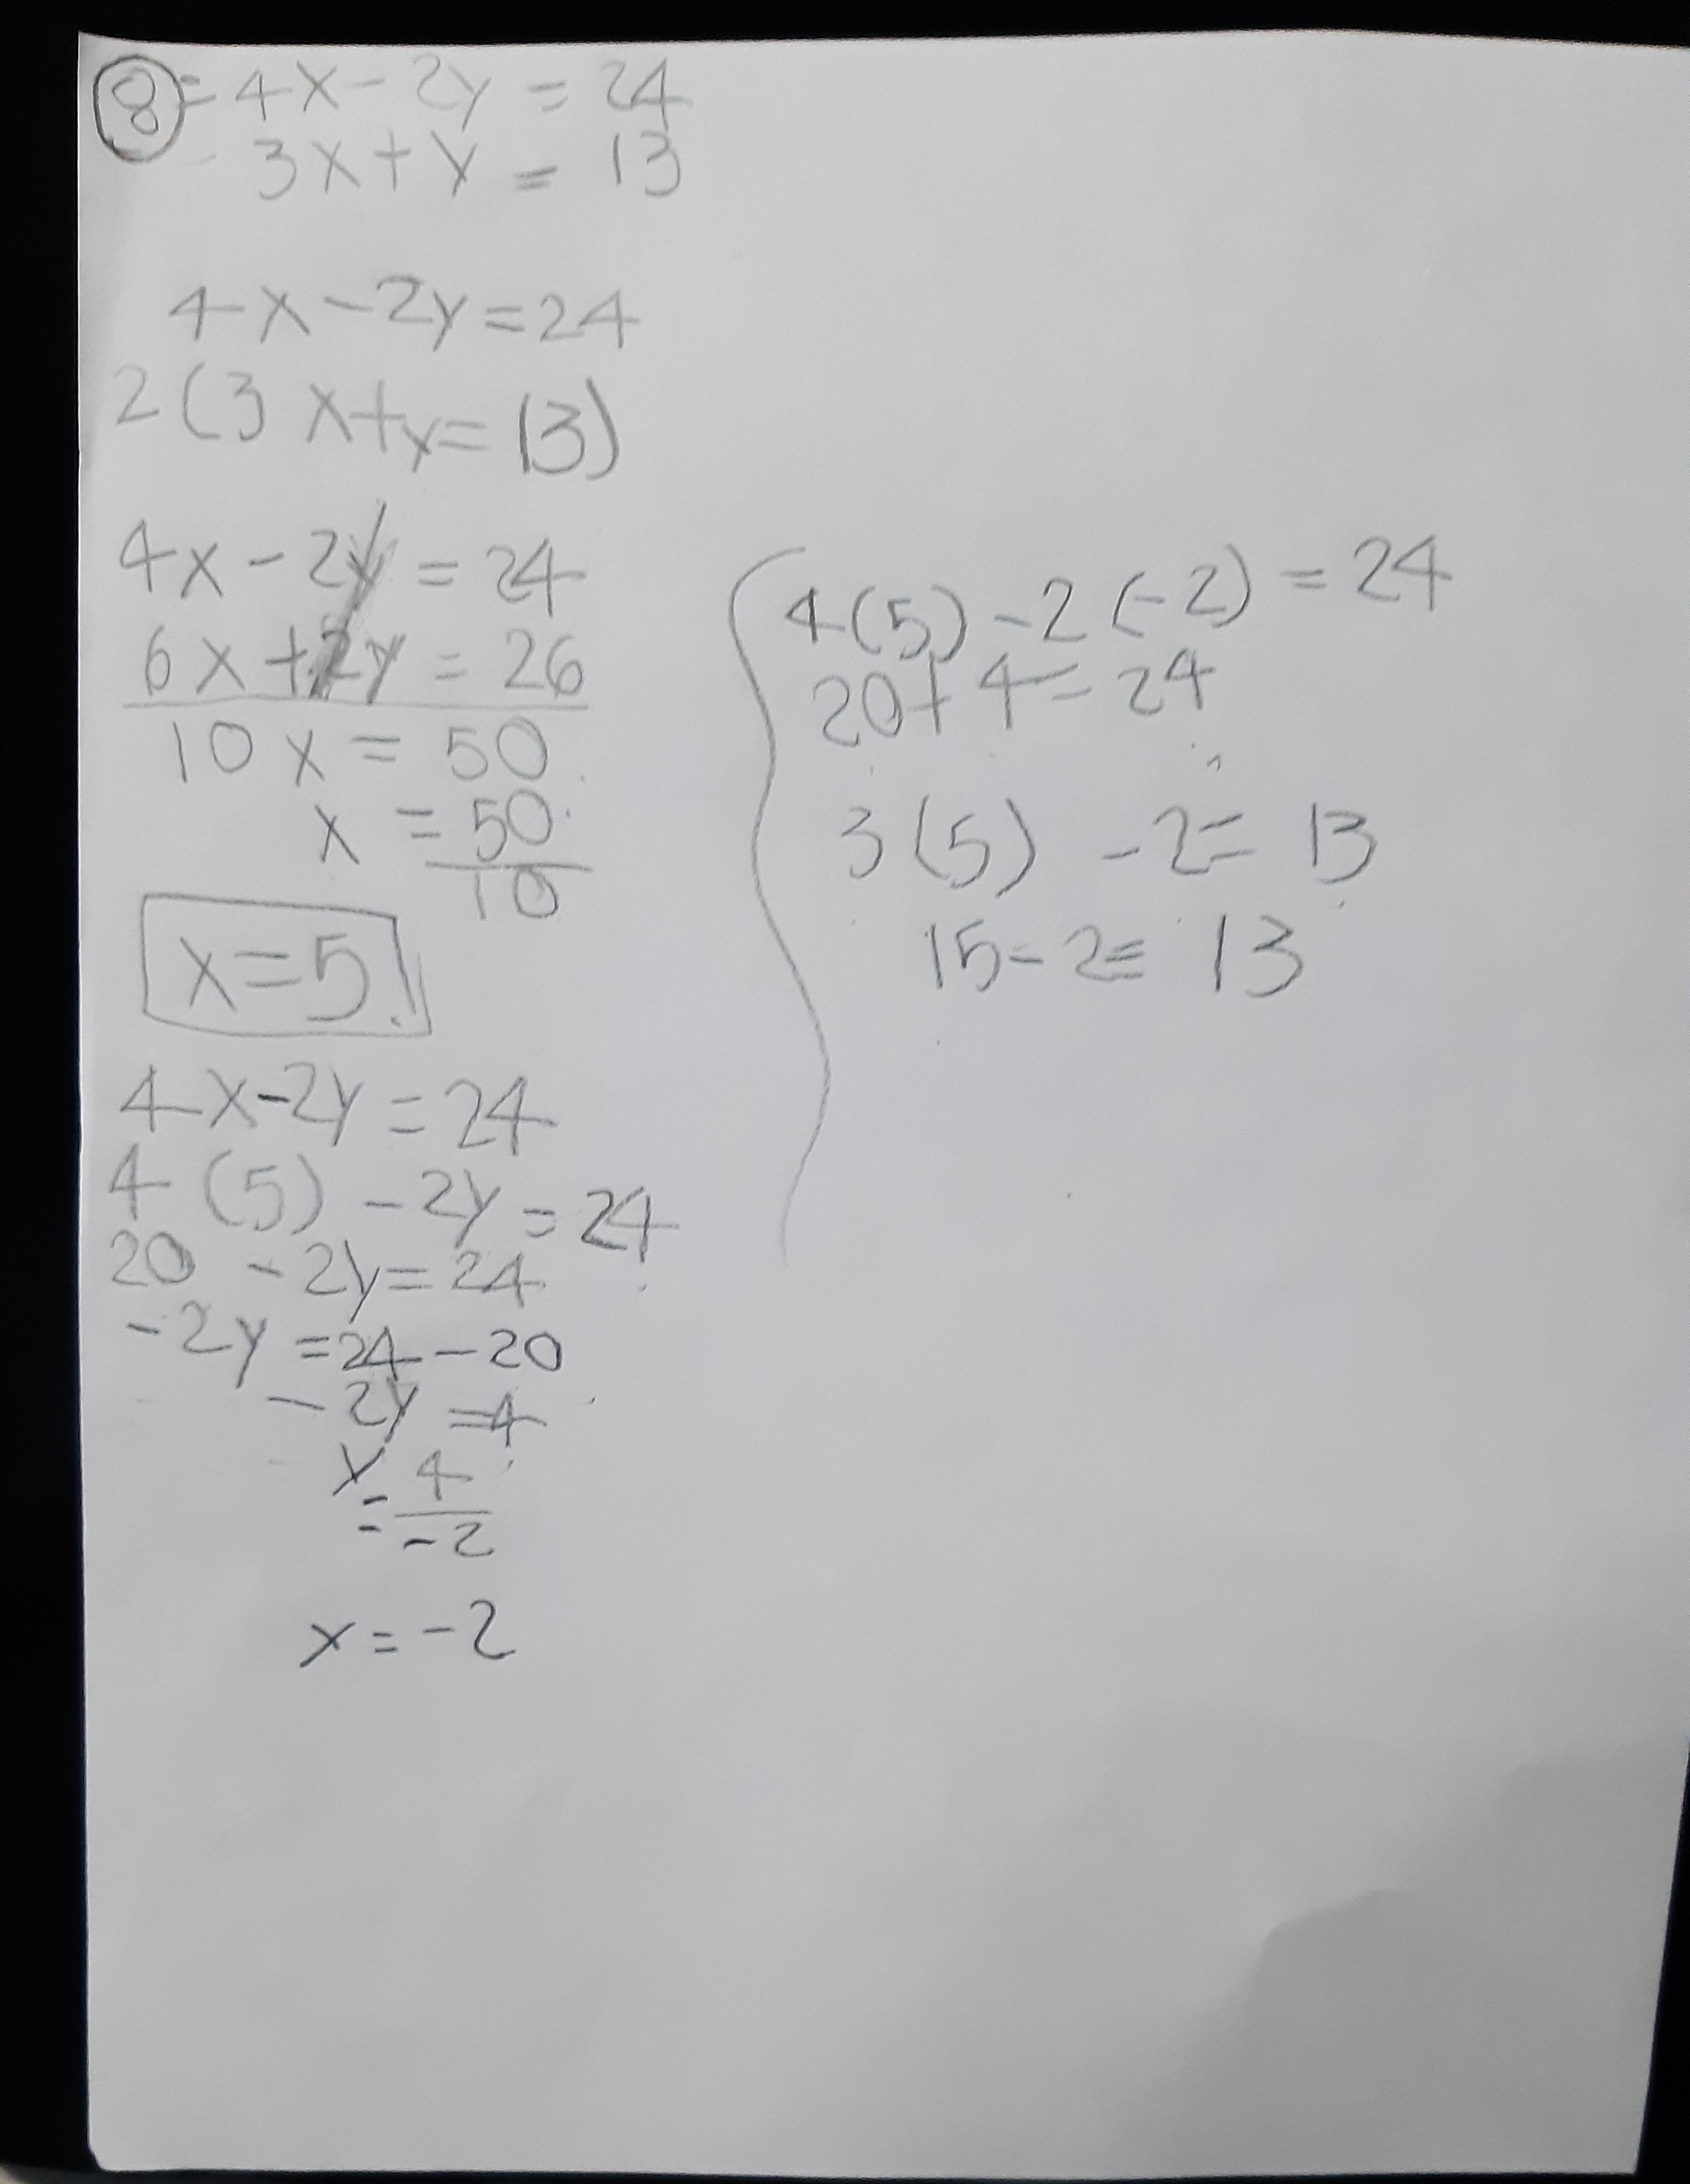 8= 4x-2y = 24
3x+y = 13
4x-2y=24
2(3x+y=13)
4x-2y = 24
6x+2y = 26
10x = 50
x = 50
10
x=5
4x-2y=24
4(5)-2y=24
20-2y=24
-2y=24-20
-2y=4
y = 4
-2
x=-2
4(5)-2(-2)=24
20+4=24
3(5)-2=13
15-2=13